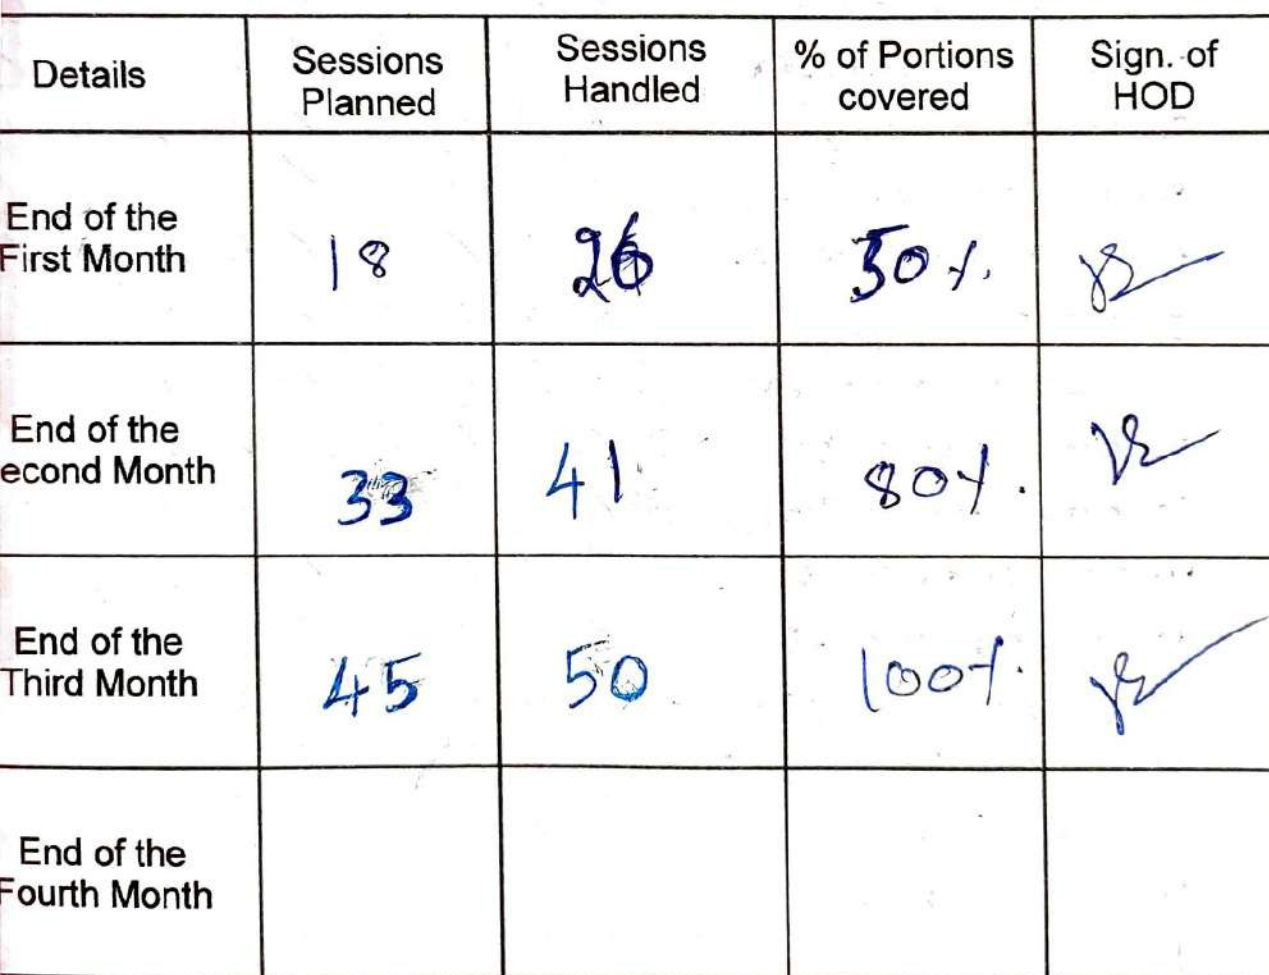 Details
Sessions Planned
Sessions Handled
% of Portions covered
Sign. of HOD
End of the First Month
18
26
50%.
End of the econd Month
33
41
80%.
End of the Third Month
45
50
100%.
End of the Fourth Month